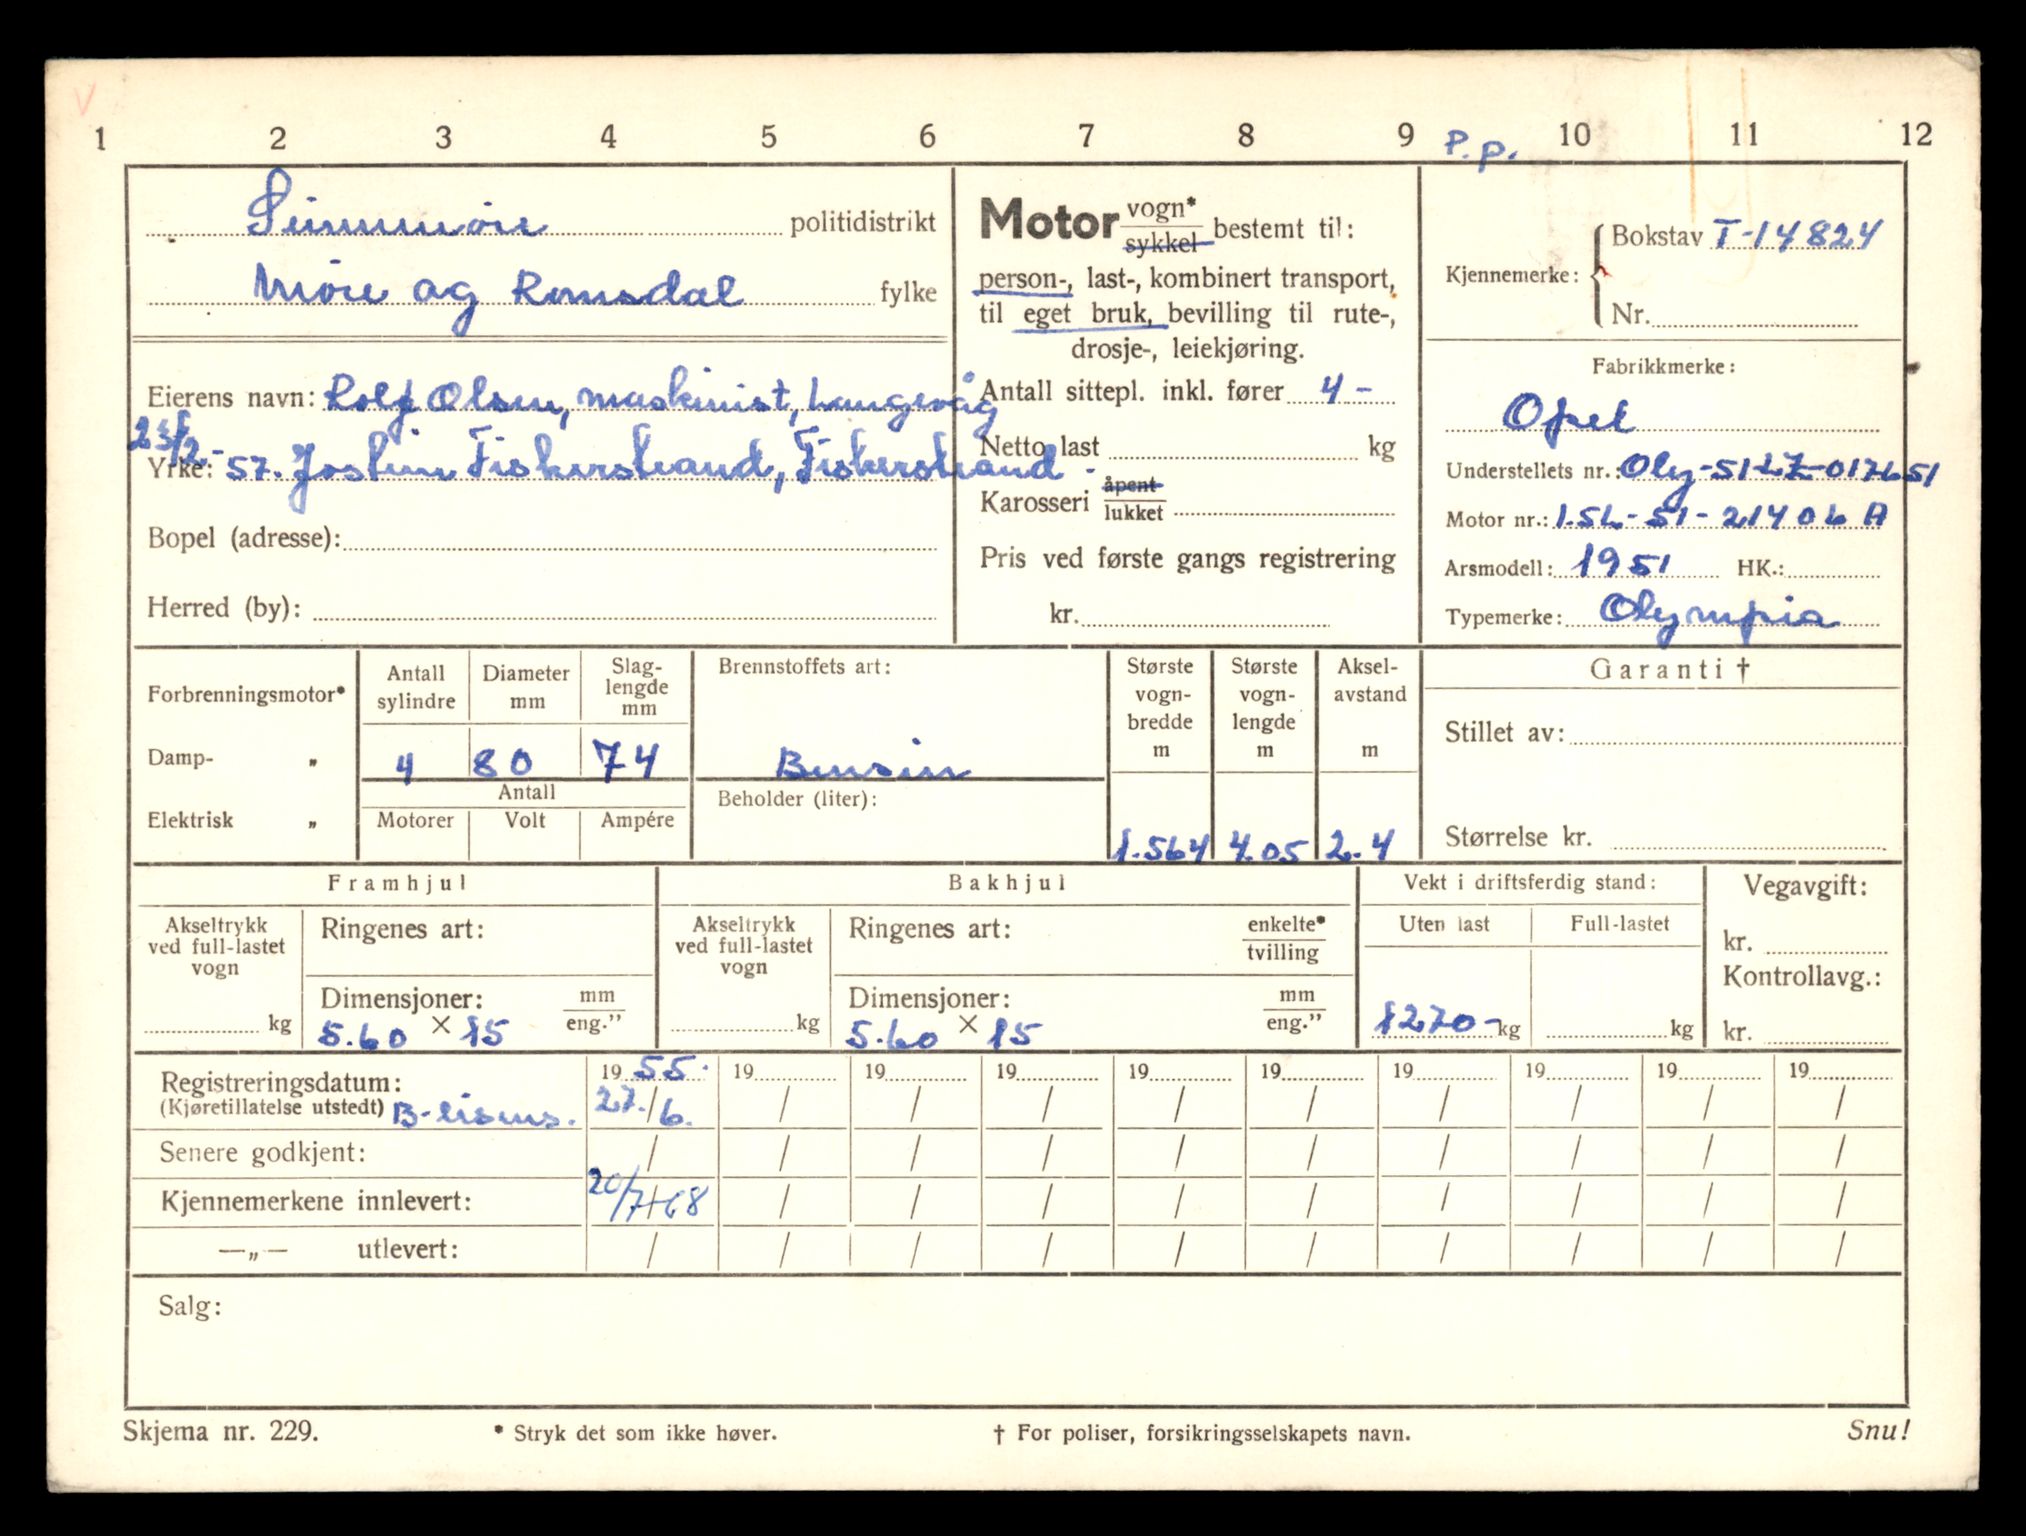 V
1 2 3 4 5 6 7 8 9 P.p. 10 11 12
Sunnmøre politidistrikt
Møre og Romsdal fylke
Eierens navn: Rolf Olsen, maskinist, Langevåg
Yrke: 57. Jostein Fiskerstrand, Fiskerstrand
Bopel (adresse):
Herred (by):
Motor vogn* sykkel bestemt til:
person-, last-, kombinert transport,
til eget bruk, bevilling til rute-,
drosje-, leiekjøring.
Antall sittepl. inkl. fører 4 -
Netto last kg
Karosseri åpent lukket
Pris ved første gangs registrering
kr.
Kjennemerke: Bokstav T-14824
Nr.
Fabrikkmerke:
Opel
Understellets nr.: Oly-51-LZ-017651
Motor nr.: 1.5L-51-21406 A
Arsmodell: 1951 HK.:
Typemerke: Olympia
Forbrenningsmotor*
Damp- „
Elektrisk „
Antall sylindre
Diameter mm
Slag- lengde mm
4 80 74
Antall
Motorer Volt Ampére
Brennstoffets art:
Bensin
Beholder (liter):
Største vogn- bredde m
1.564
Største vogn- lengde m
4.05
Aksel- avstand m
2.4
Garanti †
Stillet av:
Størrelse kr.
Framhjul
Akseltrykk ved full-lastet vogn
kg
Ringenes art:
Dimensjoner: mm eng.”
5.60 × 15
Bakhjul
Akseltrykk ved full-lastet vogn
kg
Ringenes art: enkelte* tvilling
Dimensjoner: mm eng.”
5.60 × 15
Vekt i driftsferdig stand:
Uten last Full-lastet
1270- kg kg
Vegavgift:
kr.
Kontrollavg.:
kr.
19 55. 19 19 19 19 19 19 19 19 19
Registreringsdatum:
(Kjøretillatelse utstedt) B-lisens. 27./6. / / / / / / / / /
Senere godkjent: / / / / / / / / / /
Kjennemerkene innlevert: 20/7-68 / / / / / / / / /
—„— utlevert: / / / / / / / / / /
Salg:
Skjema nr. 229.
* Stryk det som ikke høver.
† For poliser, forsikringsselskapets navn.
Snu!